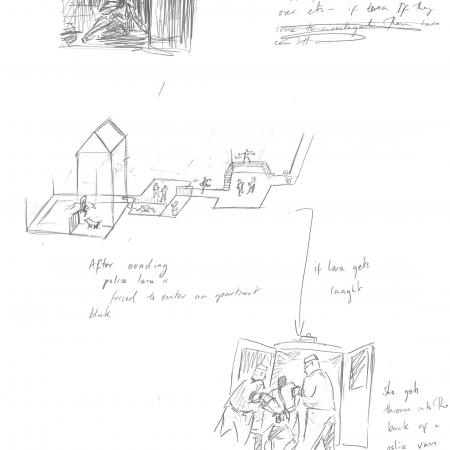 over etc - if Lara If they
can
After evading
police Lara is
forced to enter an apartment
block
if Lara gets
caught
She gets
thrown into the
back of a
police van